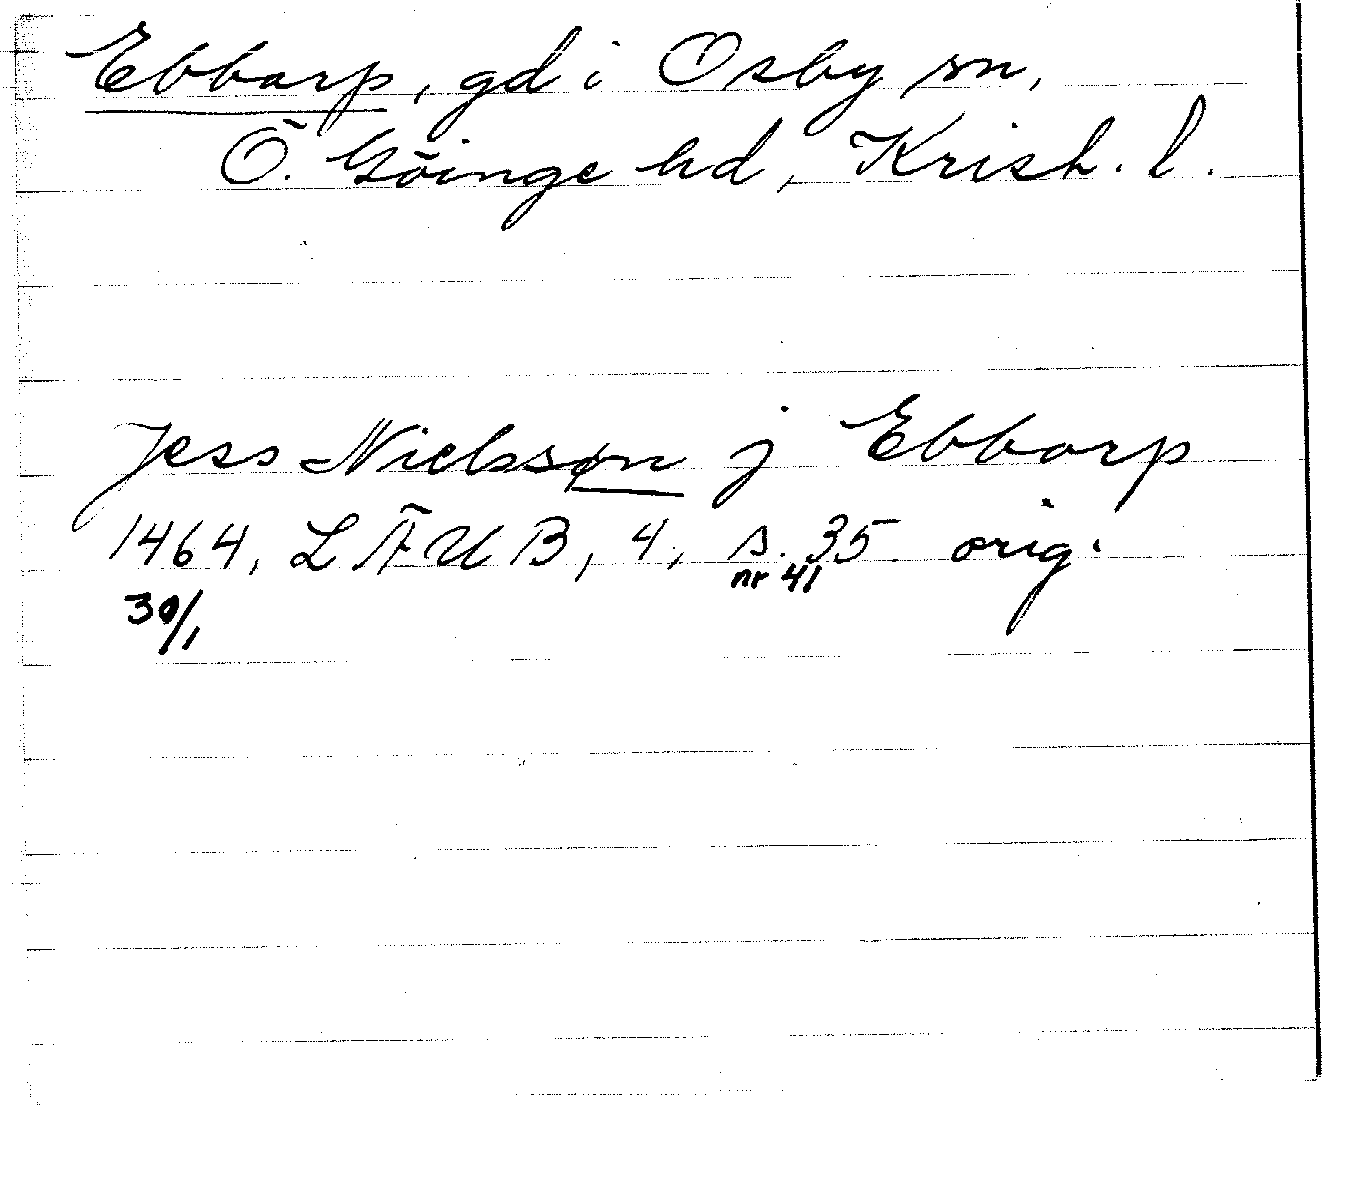 Ebbarp, gd i Osby sn,
Ö. Göinge hd, Krist. l.
Jess Nielssøn j Ebbarp
1464, LÄUB, 4, s. 35 orig.
nr 41
30/1